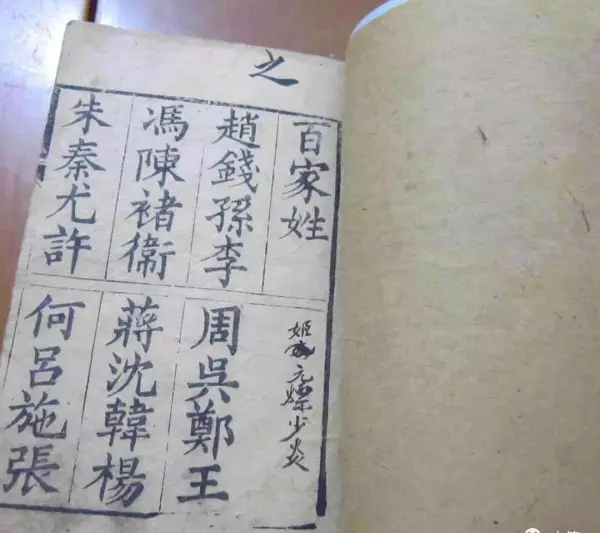 之
百家姓
姬
趙錢孫李
周吳鄭王
馮陳褚衛
蔣沈韓楊
朱秦尤許
何呂施張